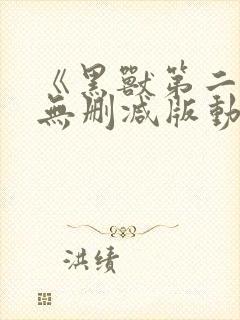 《黑獸第二
無删减版動
洪绩